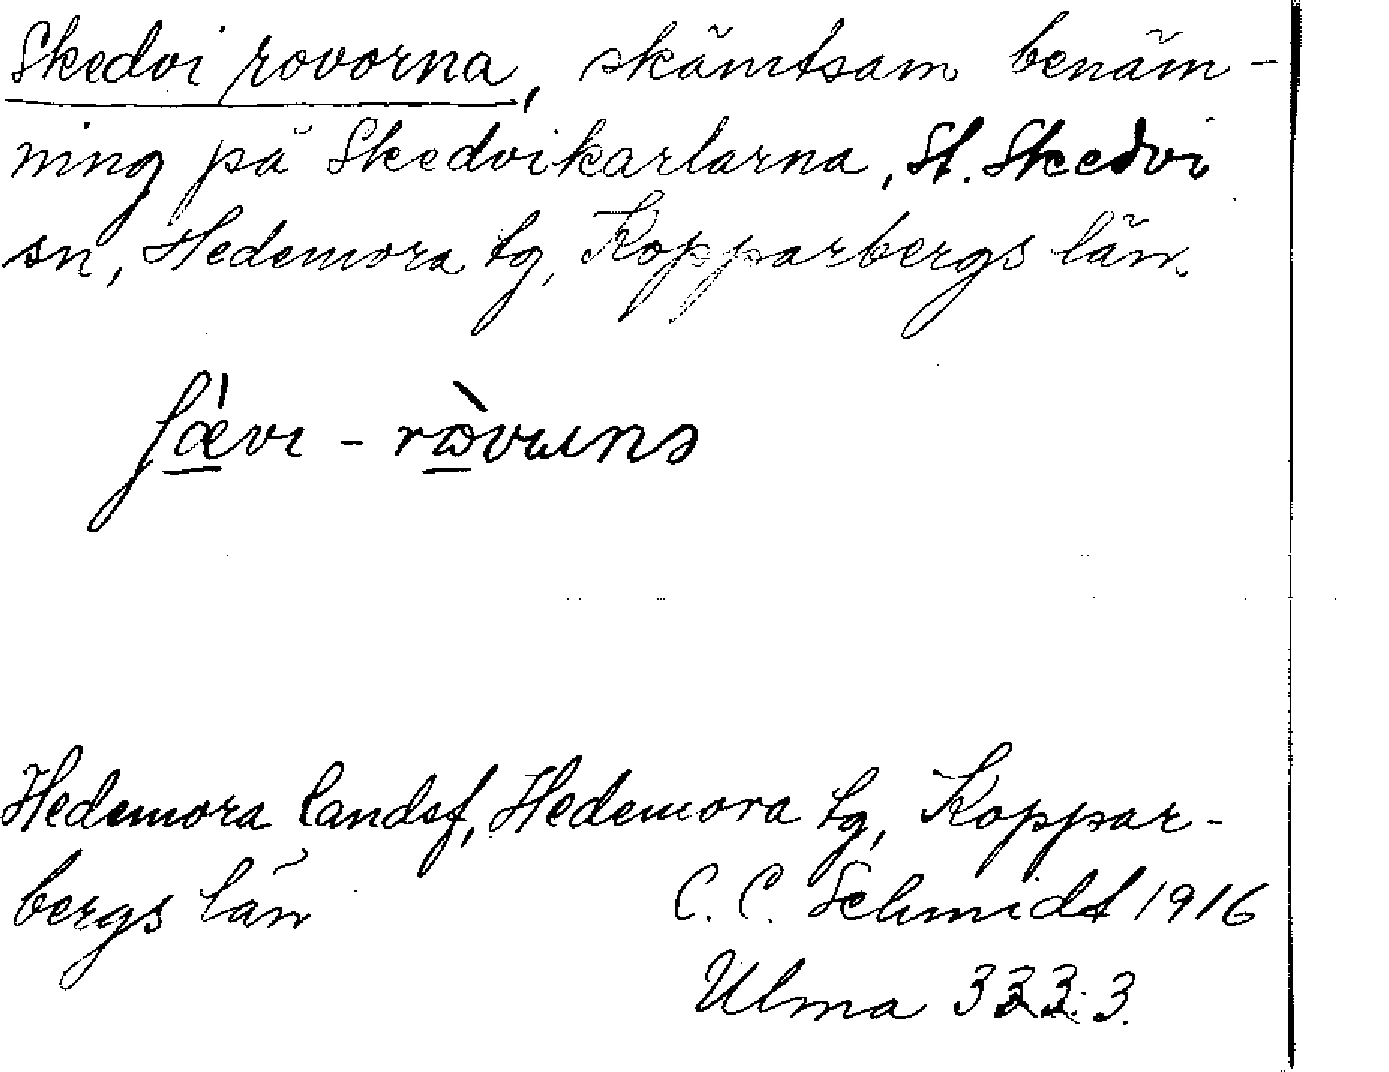 Skedvi rovorna, skämtsam benäm-
ning på Skedvikarlarna, St. Skedvi
sn, Hedemora tg, Kopparbergs län.
ʃǽvɩ - rɷ̀vɯɩnə
Hedemora landsf, Hedemora tg, Koppar-
bergs län
C. C. Schmidt 1916
Ulma 333:3.